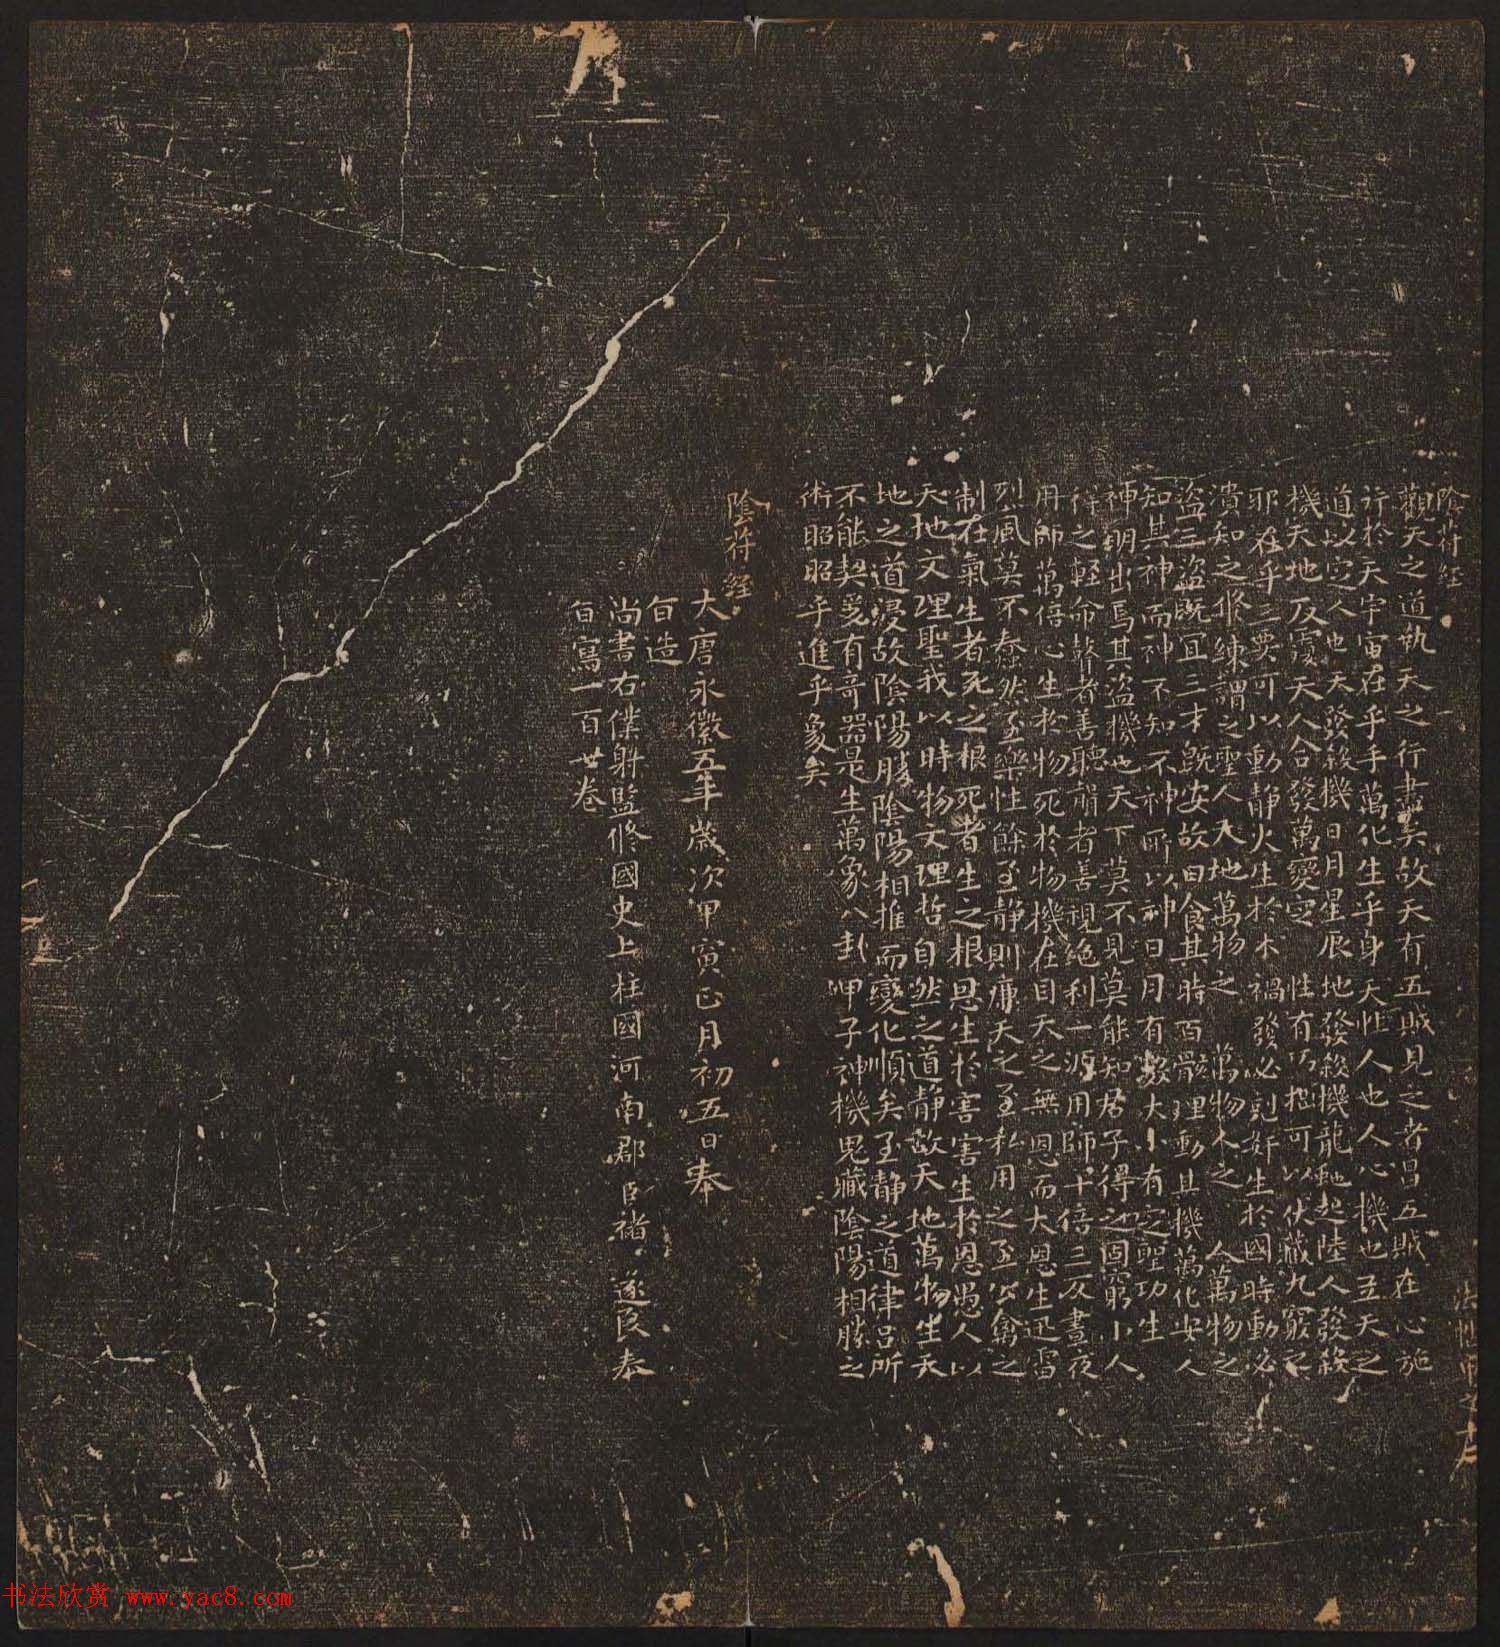 陰符經
觀天之道執天之行盡矣故天有五賊見之者昌五賊在心施
行於天宇宙在乎手萬化生乎身天性人也人心機也立天之
道以定人也天發殺機日月星辰地發殺機龍虵起陸人發殺
機天地反覆天人合發萬變定 性有巧拙可以伏藏九竅之
耶在乎三要可以動靜火生於木禍發必剋奸生於國時動必
潰知之修練謂之聖人天地萬物之 萬物人之 人萬物之
盜三盜既宜三才既安故曰食其時百骸理動其機萬化安人
知其神而神不知不神所以神日月有數大小有定聖功生
神明出焉其盜機也天下莫不見莫能知君子得之固窮小人
得之輕命瞽者善聽聾者善視絶利一源用師十倍三反晝夜
用師萬倍心生於物死於物機在目天之無恩而大恩生迅雷
烈風莫不蠢然至樂性餘至靜則廉天之至私用之至公禽之
制在氣生者死之根死者生之根恩生於害害生於恩愚人以
天地文理聖我以時物文理哲自然之道靜故天地萬物生天
地之道浸故陰陽勝陰陽相推而變化順矣至靜之道律呂所
不能契爰有奇器是生萬象八卦甲子神機鬼藏陰陽相勝之
術昭昭乎進乎象矣
陰符經
大唐永徽五年歲次甲寅正月初五日奉
旨造
尚書右僕射監修國史上柱國河南郡臣褚遂良奉
旨寫一百廿卷
书法欣赏 www.yac8.com